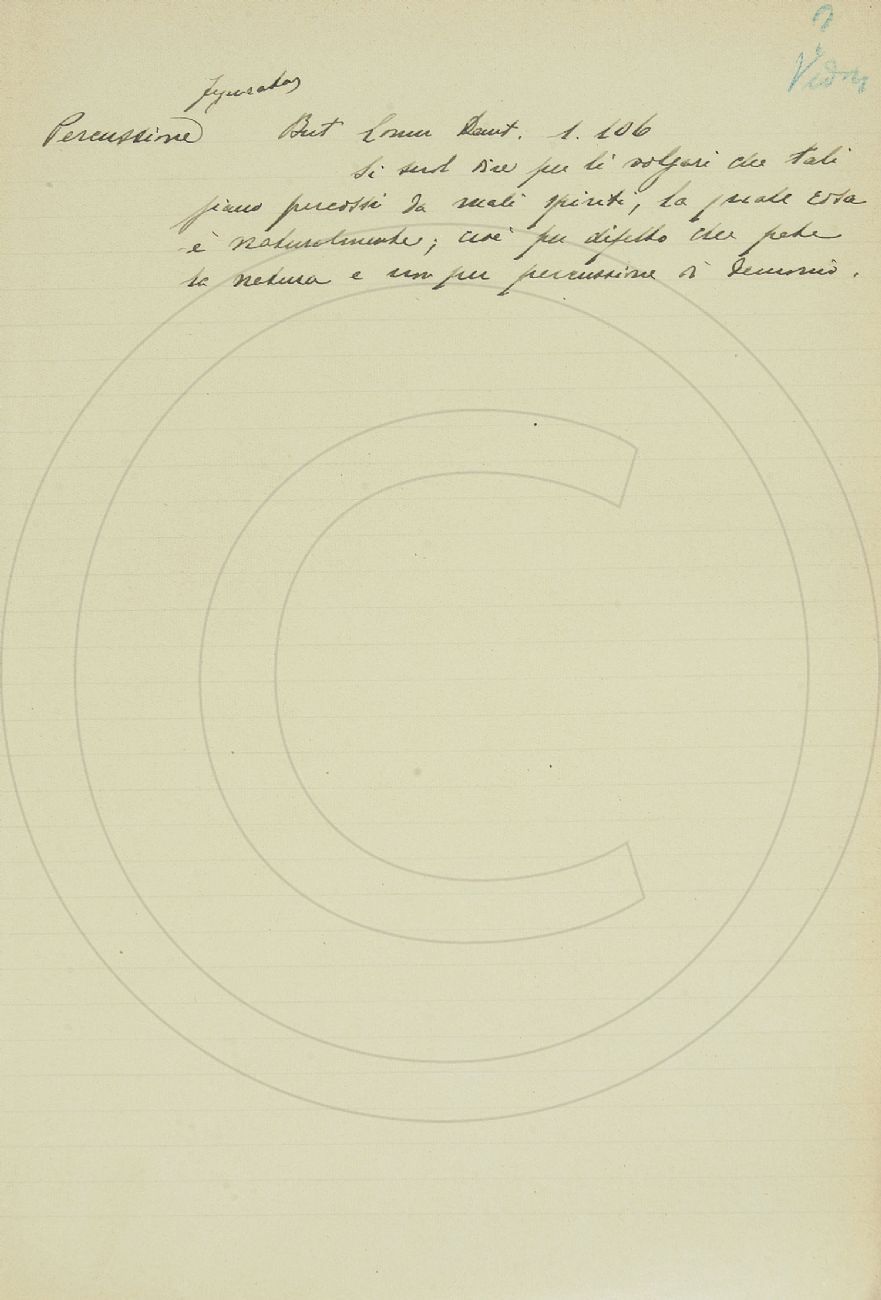 ?
Vedi
figurato
Percussione But Comm Dant. 1. 106
Si suol dire per li volgari che tali
siano percossi da mali spiriti, la quale cosa
è naturalmente; cioè per difetto che pate
la natura e non per percussione di demonio.